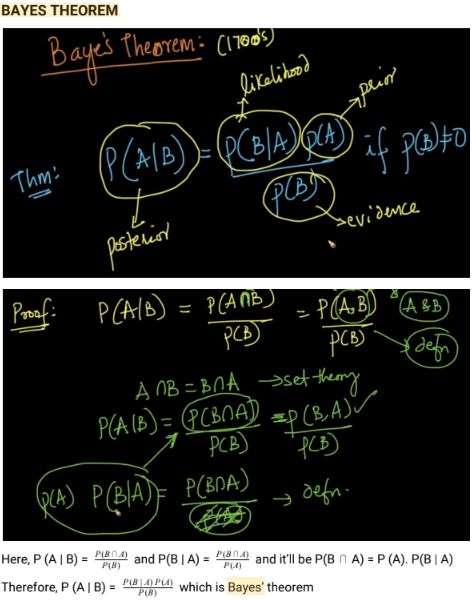 BAYES THEOREM
Baye's Theorem: (1700's)
likelihood
prior
Thm: P(A|B) = P(B|A) P(A) / P(B) if P(B)≠0
posterior
evidence
Proof: P(A|B) = P(A∩B) / P(B) = P(A,B) / P(B)
A&B
defn
A∩B = B∩A → set theory
P(A|B) = P(B∩A) / P(B) = P(B,A) / P(B) ✓
P(A) P(B|A) = P(B∩A) / → defn.
Here, P (A | B) = P(B ∩ A) / P(B) and P(B | A) = P(B ∩ A) / P(A) and it'll be P(B ∩ A) = P (A). P(B | A)
Therefore, P (A | B) = P(B | A) P(A) / P(B) which is Bayes' theorem